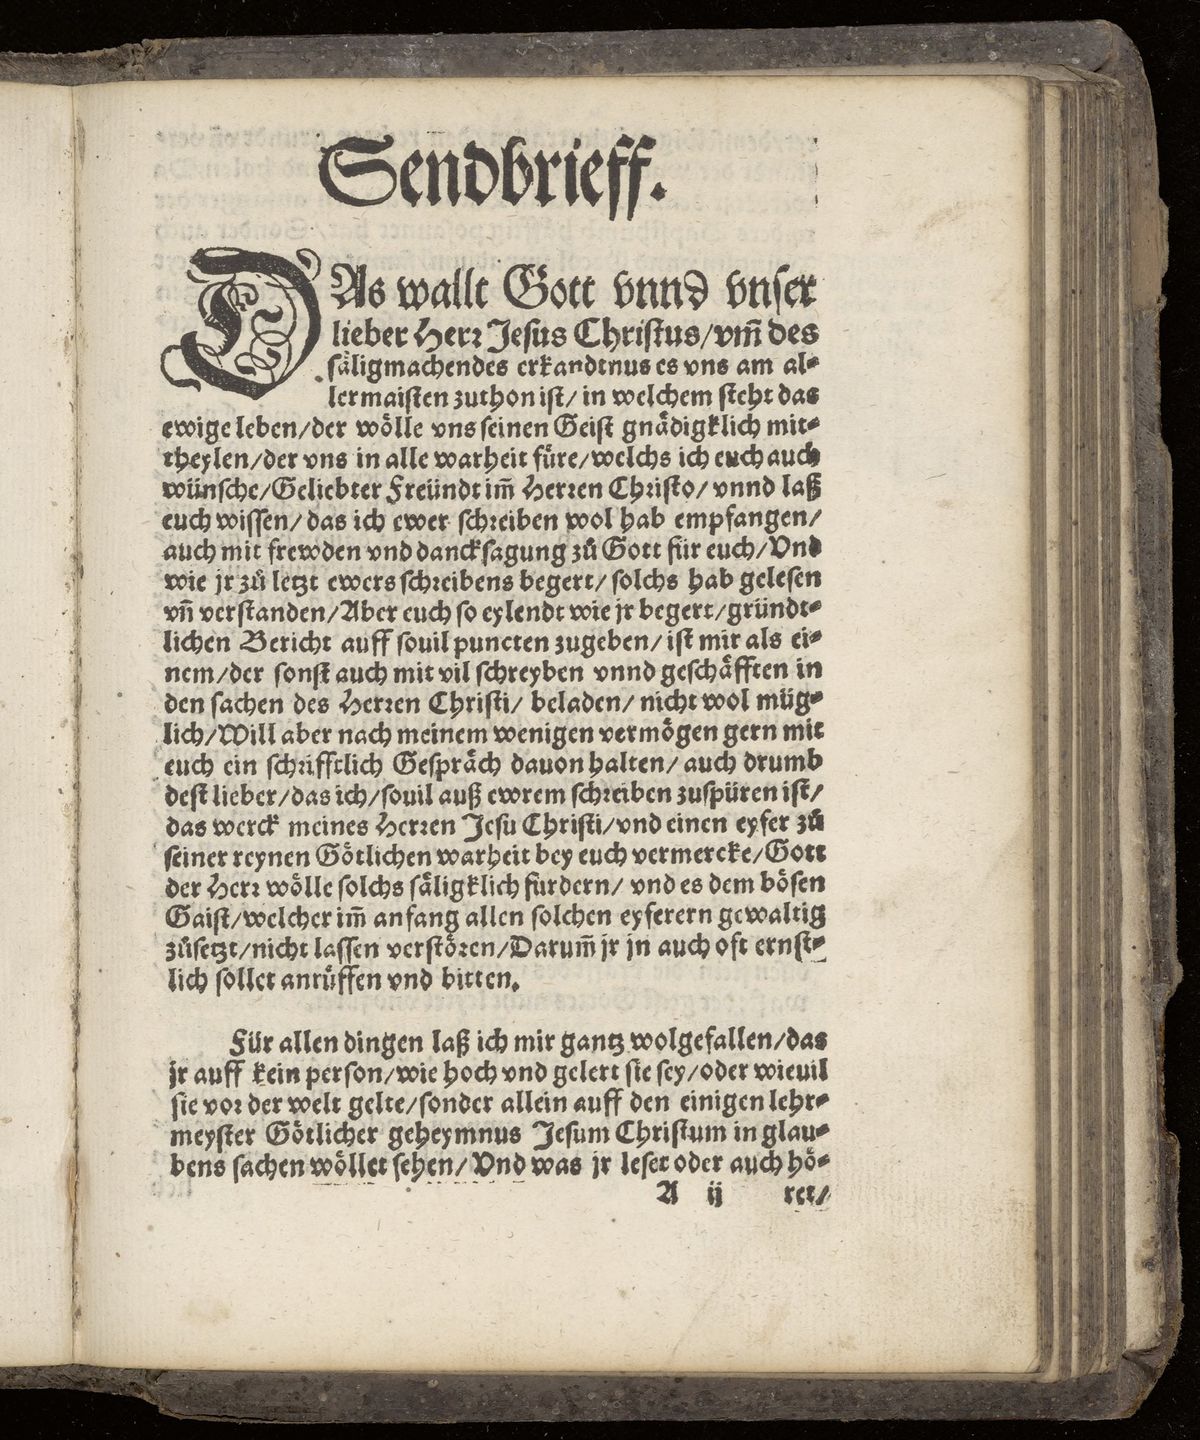 Sendbrieff.
DAs wallt Gott vnnd vnser
lieber Herr Jesus Christus/vm̃ des
säligmachendes erkandtnus es vns am al-
lermaisten zuthon ist/ in welchem steht das
ewige leben/der wölle vns seinen Geist gnädigklich mit-
theylen/der vns in alle warheit füre/welchs ich euch auch
wünsche/Geliebter Freündt im̃ Herren Christo/ vnnd laß
euch wissen/ das ich ewer schreiben wol hab empfangen/
auch mit frewden vnd dancksagung zů Gott für euch/Vnd
wie jr zů letzt ewers schreibens begert/ solchs hab gelesen
vñ verstanden/Aber euch so eylendt wie jr begert/gründt-
lichen Bericht auff souil puncten zugeben/ ist mir als ei-
nem/der sonst auch mit vil schreyben vnnd geschäfften in
den sachen des Herren Christi/ beladen/ nicht wol müg-
lich/Will aber nach meinem wenigen vermögen gern mit
euch ein schrifftlich Gespräch dauon halten/ auch drumb
dest lieber/das ich/souil auß ewrem schreiben zuspüren ist/
das werck meines Herren Jesu Christi/vnd einen eyfer zů
seiner reynen Götlichen warheit bey euch vermercke/Gott
der Herr wölle solchs säligklich furdern/ vnd es dem bösen
Gaist/welcher im̃ anfang allen solchen eyferern gewaltig
zůsetzt/nicht lassen verstören/Darum̃ jr jn auch oft ernst-
lich sollet anrüffen vnd bitten.
Für allen dingen laß ich mir gantz wolgefallen/das
jr auff kein person/wie hoch vnd gelert sie sey/oder wieuil
sie vor der welt gelte/sonder allein auff den einigen lehr-
meyster Götlicher geheymnus Jesum Christum in glau-
bens sachen wöllet sehen/Vnd was jr leset oder auch hö-
A ij ret/